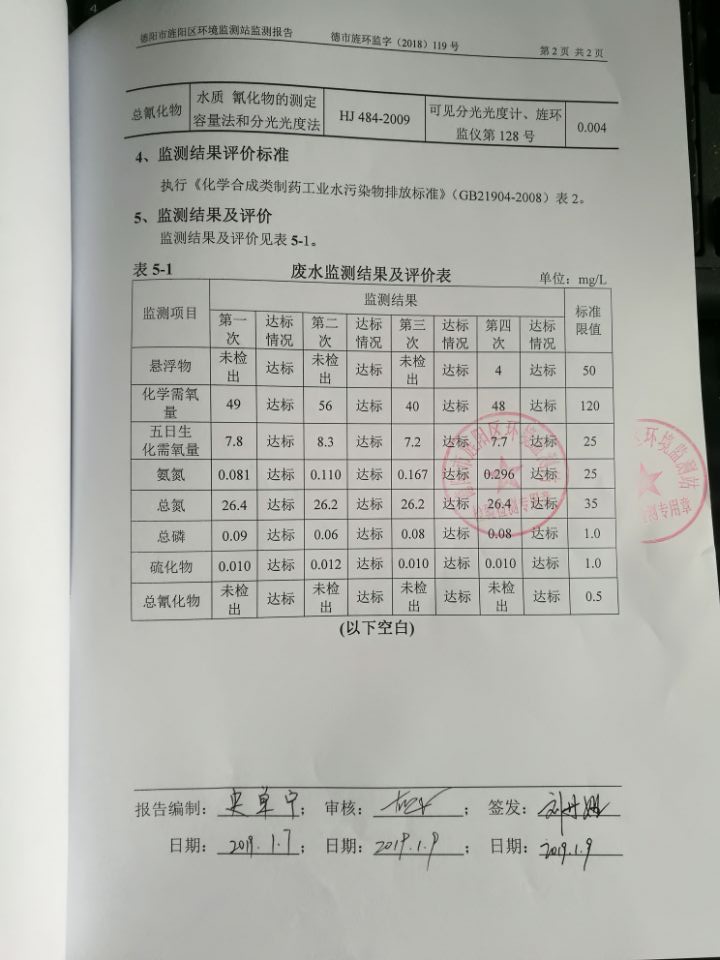 德阳市旌阳区环境监测站监测报告 德市旌环监字（2018）119 号 第 2 页 共 2 页
总氰化物 水质 氰化物的测定 容量法和分光光度法 HJ 484-2009 可见分光光度计、旌环监仪第 128 号 0.004
4、监测结果评价标准
执行《化学合成类制药工业水污染物排放标准》（GB21904-2008）表 2。
5、监测结果及评价
监测结果及评价见表 5-1。
表 5-1 废水监测结果及评价表 单位：mg/L
监测项目 监测结果 标准限值
第一次 达标情况 第二次 达标情况 第三次 达标情况 第四次 达标情况
悬浮物 未检出 达标 未检出 达标 未检出 达标 4 达标 50
化学需氧量 49 达标 56 达标 40 达标 48 达标 120
五日生化需氧量 7.8 达标 8.3 达标 7.2 达标 7.7 达标 25
氨氮 0.081 达标 0.110 达标 0.167 达标 0.296 达标 25
总氮 26.4 达标 26.2 达标 26.2 达标 26.4 达标 35
总磷 0.09 达标 0.06 达标 0.08 达标 0.08 达标 1.0
硫化物 0.010 达标 0.012 达标 0.010 达标 0.010 达标 1.0
总氰化物 未检出 达标 未检出 达标 未检出 达标 未检出 达标 0.5
(以下空白)
报告编制： ； 审核： ； 签发：
日期：2019.1.7； 日期：2019.1.9； 日期：2019.1.9